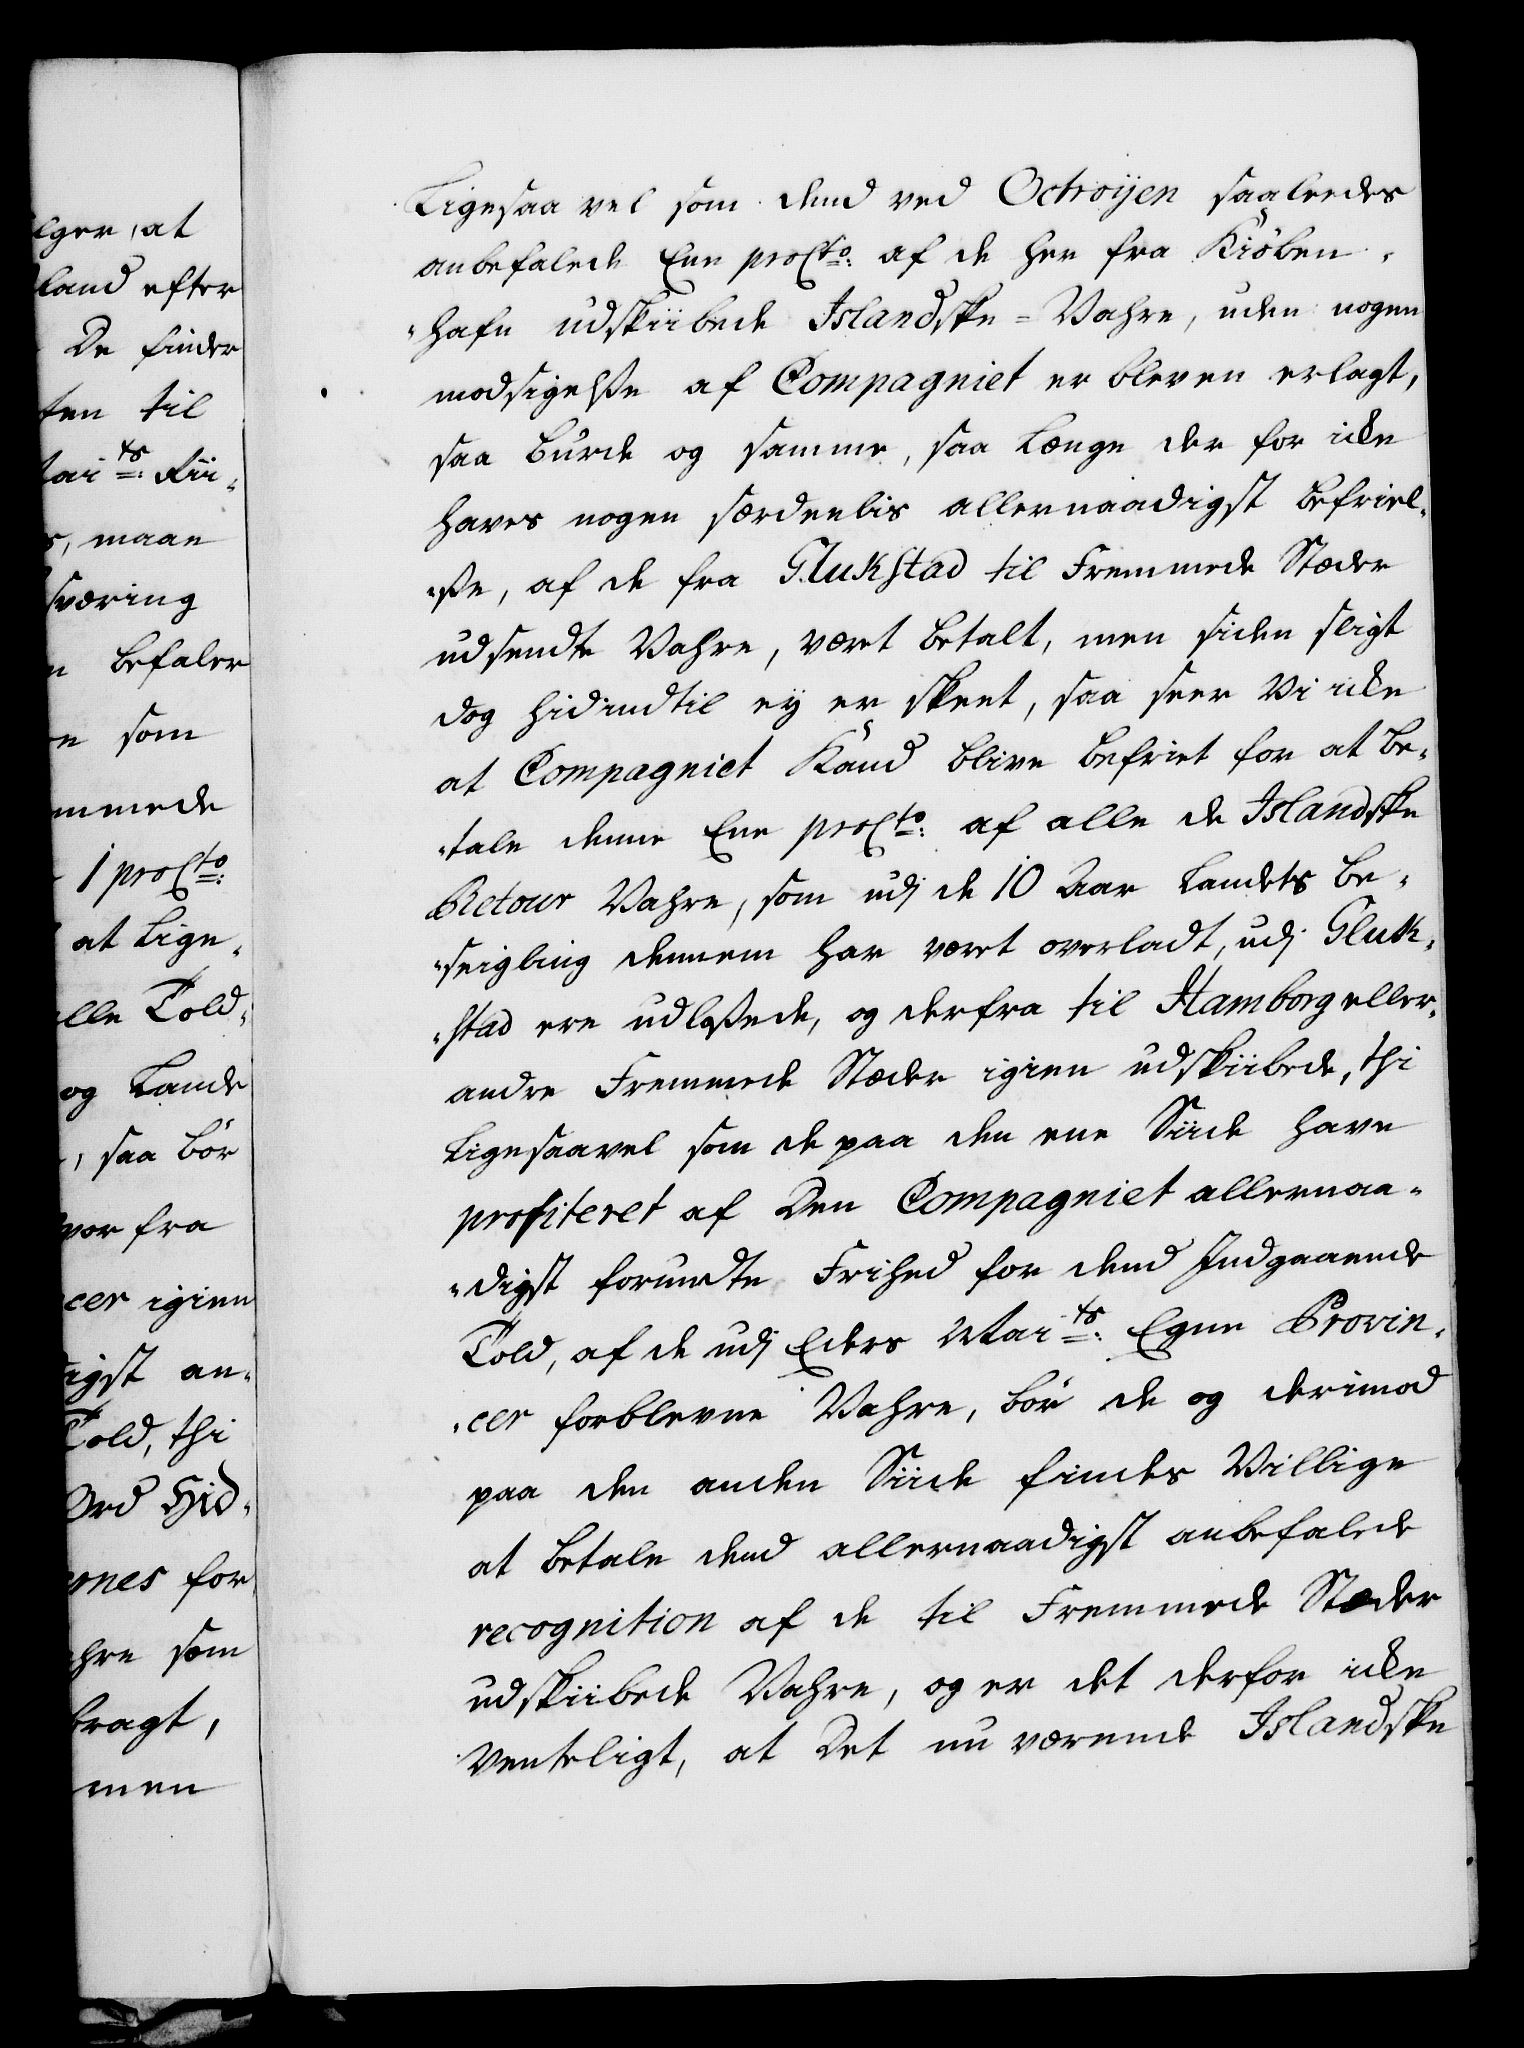 lger, at
land efter
De finder
ten til
tai ts: Rii-
s, maae
sværing
n befaler
n som
mmede
1 proCto:
at Lige-
lle Told-
og Lande
, saa bör
vor fra
cer igien
igst an-
Told, thi
Ord Hid-
rnes for
hre som
bragt,
men
Ligesaa vel som dend ved Octroijen saaleedes
anbefalede Een proCto: af de her fra Kiöben-
-hafn udskiibede Islandske=Vahre, uden nogen
modsigelsse af Compagniet er bleven erlagt,
saa burde og samme, saa Længe der for icke
haves nogen særdeelis allernaadigst befriel-
-sse, af de fra Glukstad til Fremmede Stæder
udsendte Vahre, været betalt, men siden sligt
dog hidindtil ey er skeet, saa seer Vi icke
at Compagniet Kand blive befriet for at be-
-tale denne Een proCto: af alle de Islandske
Retour Vahre, som udj de 10 Aar Landets be-
-seigling dennem har været overladt, udj Gluk-
-stad ere udlossede, og derfra til Hamborg eller
andre Fremmede Stæder igien udskiibede, thi
Ligesaavel som de paa den ene Siide have
profiteret af Den Compagniet allernaa-
-digst forundte Frihed for dend Indgaaende
Told, af de udj Eders Maits: Egne Provin-
-cer forblevne Vahre, bör de og derimod
paa den anden Siide findes Villige
at betale dend allernaadigst anbefalede
recognition af de til Fremmede Stæder
udskiibede Vahre, og er det derfor icke
Venteligt, at Det nu værende Islandske